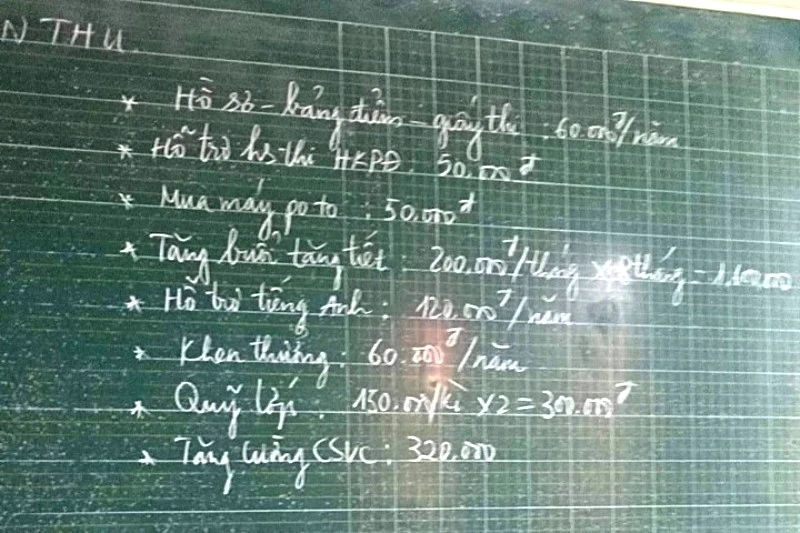 N THU
* Hồ sơ - bảng điểm - giấy thi : 60.000đ/năm
* Hỗ trợ hs thi HKPĐ : 50.000đ
* Mua máy poto : 50.000đ
* Tăng buổi tăng tiết : 200.000đ/tháng tháng =
* Hỗ trợ tiếng Anh : 120.000đ/năm
* Khen thưởng : 60.000đ/năm
* Quỹ lớp : 150.000/kì x2 = 300.000đ
* Tăng cường CSVC : 320.000